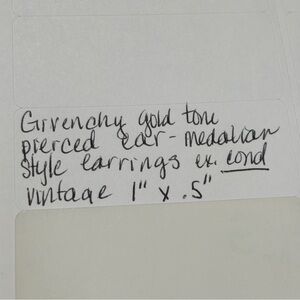 Givenchy gold tone
pierced ear - medallian
style earrings ex. cond
vintage 1" x .5"